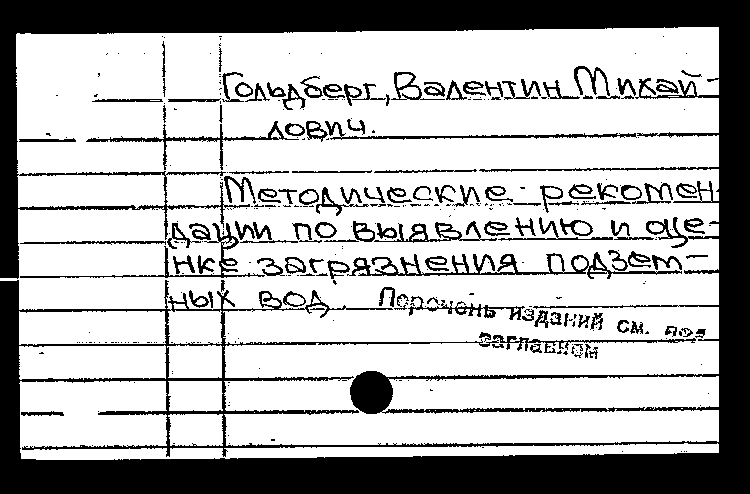 Гольдберг, Валентин Михай-
лович.
Методические рекомен
дации по выявлению и оце-
нке загрязнения подзем-
ных вод. Перечень изданий см. под
заглавием